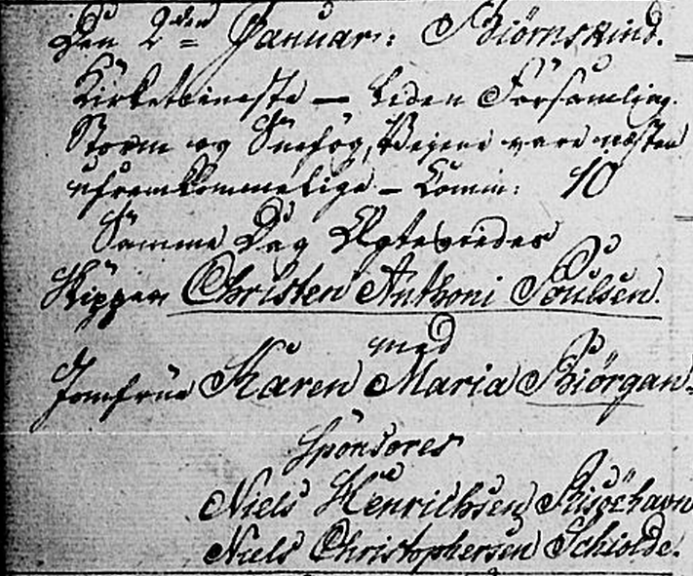 Den 2den Januar: Biörnskind.
Kirketieneste – Liden Forsamling.
Storm og Sneefog, Veiene vare næsten
ufremkommelige – Comm: 10
Samme Dag Ægteviedes
Skipper Christen Anthoni Poulsen.
med
Jomfrue Karen Maria Biörgan:
Sponsores
Niels Henrichsen Risöehavn
Niels Christophersen Schiolde.